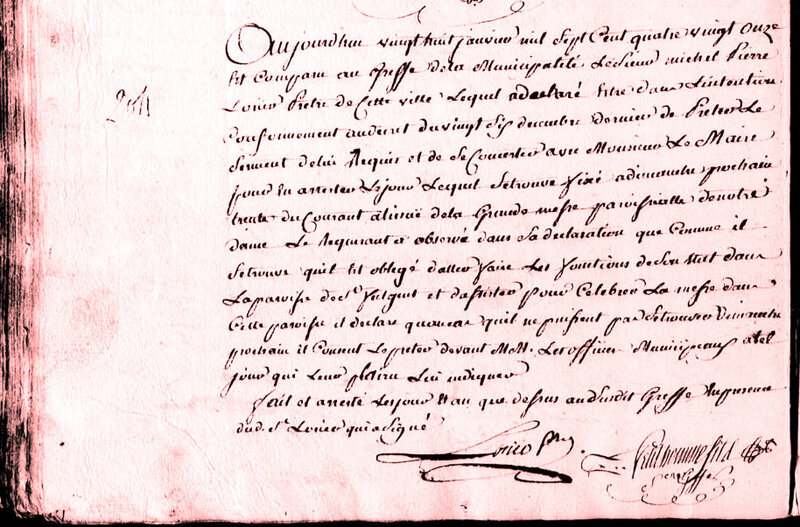 Aujourdhui vingt huit janvier mil Sept Cent quatre vingt Onze
Est Comparu au Greffe dela Municipalité Le Sieur michel Pierre
Loiier Pretre de Cette ville Lequel a declaré Estre dans Lintention
Conformement au decret du vingt Six decembre dernier de Preter Le
Serment delui Requis et de Se Concerter avec Monsieur Le Maire
pour En arreter Lejour Lequel Setrouve fixé adimanche prochain
trente du Courant alissüe dela Grande messe paroissialle denotre
dame Le Requerant a observé dans Sa declaration que Comme il
Setrouve quil Est obligé daller faire Les fonctions deSon Etat dans
Laparoisse de St fulgent et dassister pour Celebrer La messe dans
Cette paroisse il declare quau cas quil ne puissent pas Setrouver dimanche
prochain il Consent Lepreter devant MM. Les officiers Municipeaux atel
jour qui Leur plaira Lui indiquer
fait et arresté Lesjour Et an que dessus audusdit Greffe En presence
dud. Sr Loiier qui a Signé
Loiier Ptre
Greffier